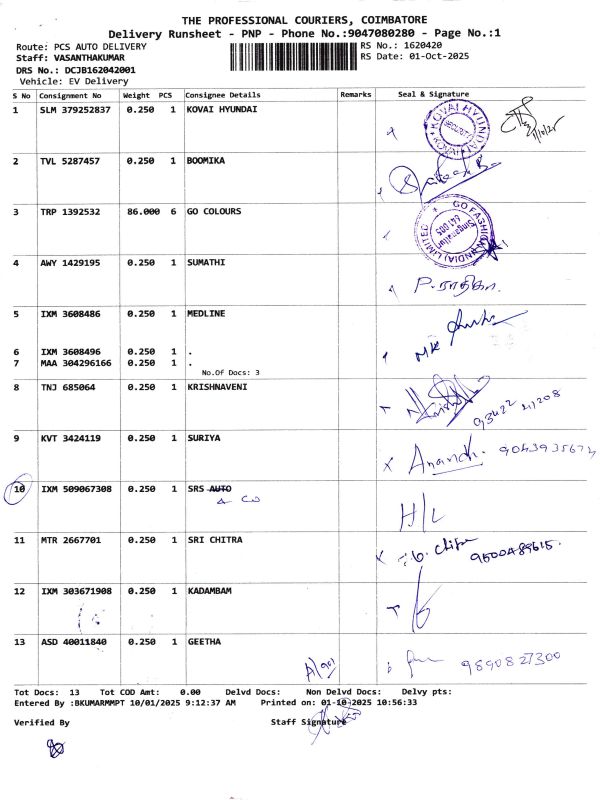 THE PROFESSIONAL COURIERS, COIMBATORE
Delivery Runsheet - PNP - Phone No.:9047080280 - Page No.:1
Route: PCS AUTO DELIVERY
RS No.: 1620420
Staff: VASANTHAKUMAR
RS Date: 01-Oct-2025
DRS No.: DCJB162042001
Vehicle: EV Delivery
S No Consignment No Weight PCS Consignee Details Remarks Seal & Signature
1 SLM 379252837 0.250 1 KOVAI HYUNDAI
KOVAI HYUNDAI
SECURITY
2 TVL 5287457 0.250 1 BOOMIKA
3 TRP 1392532 86.000 6 GO COLOURS
GO FASHION (INDIA) LIMITED
Singanallur
641 005
4 AWY 1429195 0.250 1 SUMATHI
P. ராதிகா.
5 IXM 3608486 0.250 1 MEDLINE
6 IXM 3608496 0.250 1 .
7 MAA 304296166 0.250 1 .
No.Of Docs: 3
8 TNJ 685064 0.250 1 KRISHNAVENI
9 KVT 3424119 0.250 1 SURIYA
Anandh.
10 IXM 509067308 0.250 1 SRS AUTO
& CO
H/L
11 MTR 2667701 0.250 1 SRI CHITRA
9500489615.
12 IXM 303671908 0.250 1 KADAMBAM
13 ASD 40011840 0.250 1 GEETHA
9890827300
Tot Docs: 13 Tot COD Amt: 0.00 Delvd Docs: Non Delvd Docs: Delvy pts:
Entered By :BKUMARMMPT 10/01/2025 9:12:37 AM Printed on: 01-10-2025 10:56:33
Verified By Staff Signature